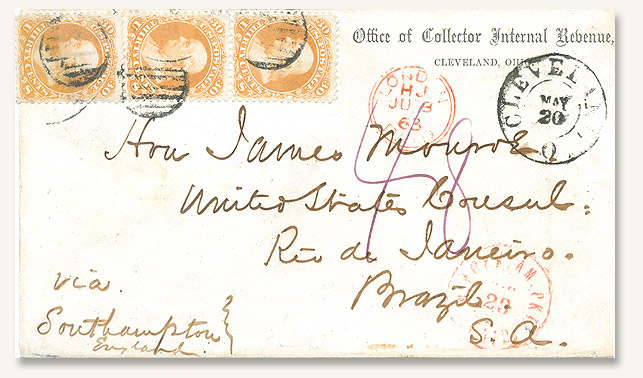 Office of Collector Internal Revenue,
CLEVELAND, OHIO
LONDON
HJ
JU 3
63
CLEVELAND
MAY
20
O
48
Hon James Monroe
United States Consul:
Rio de Janeiro.
Brazil.
S. A.
via
Southampton
England
AM. PKT
23